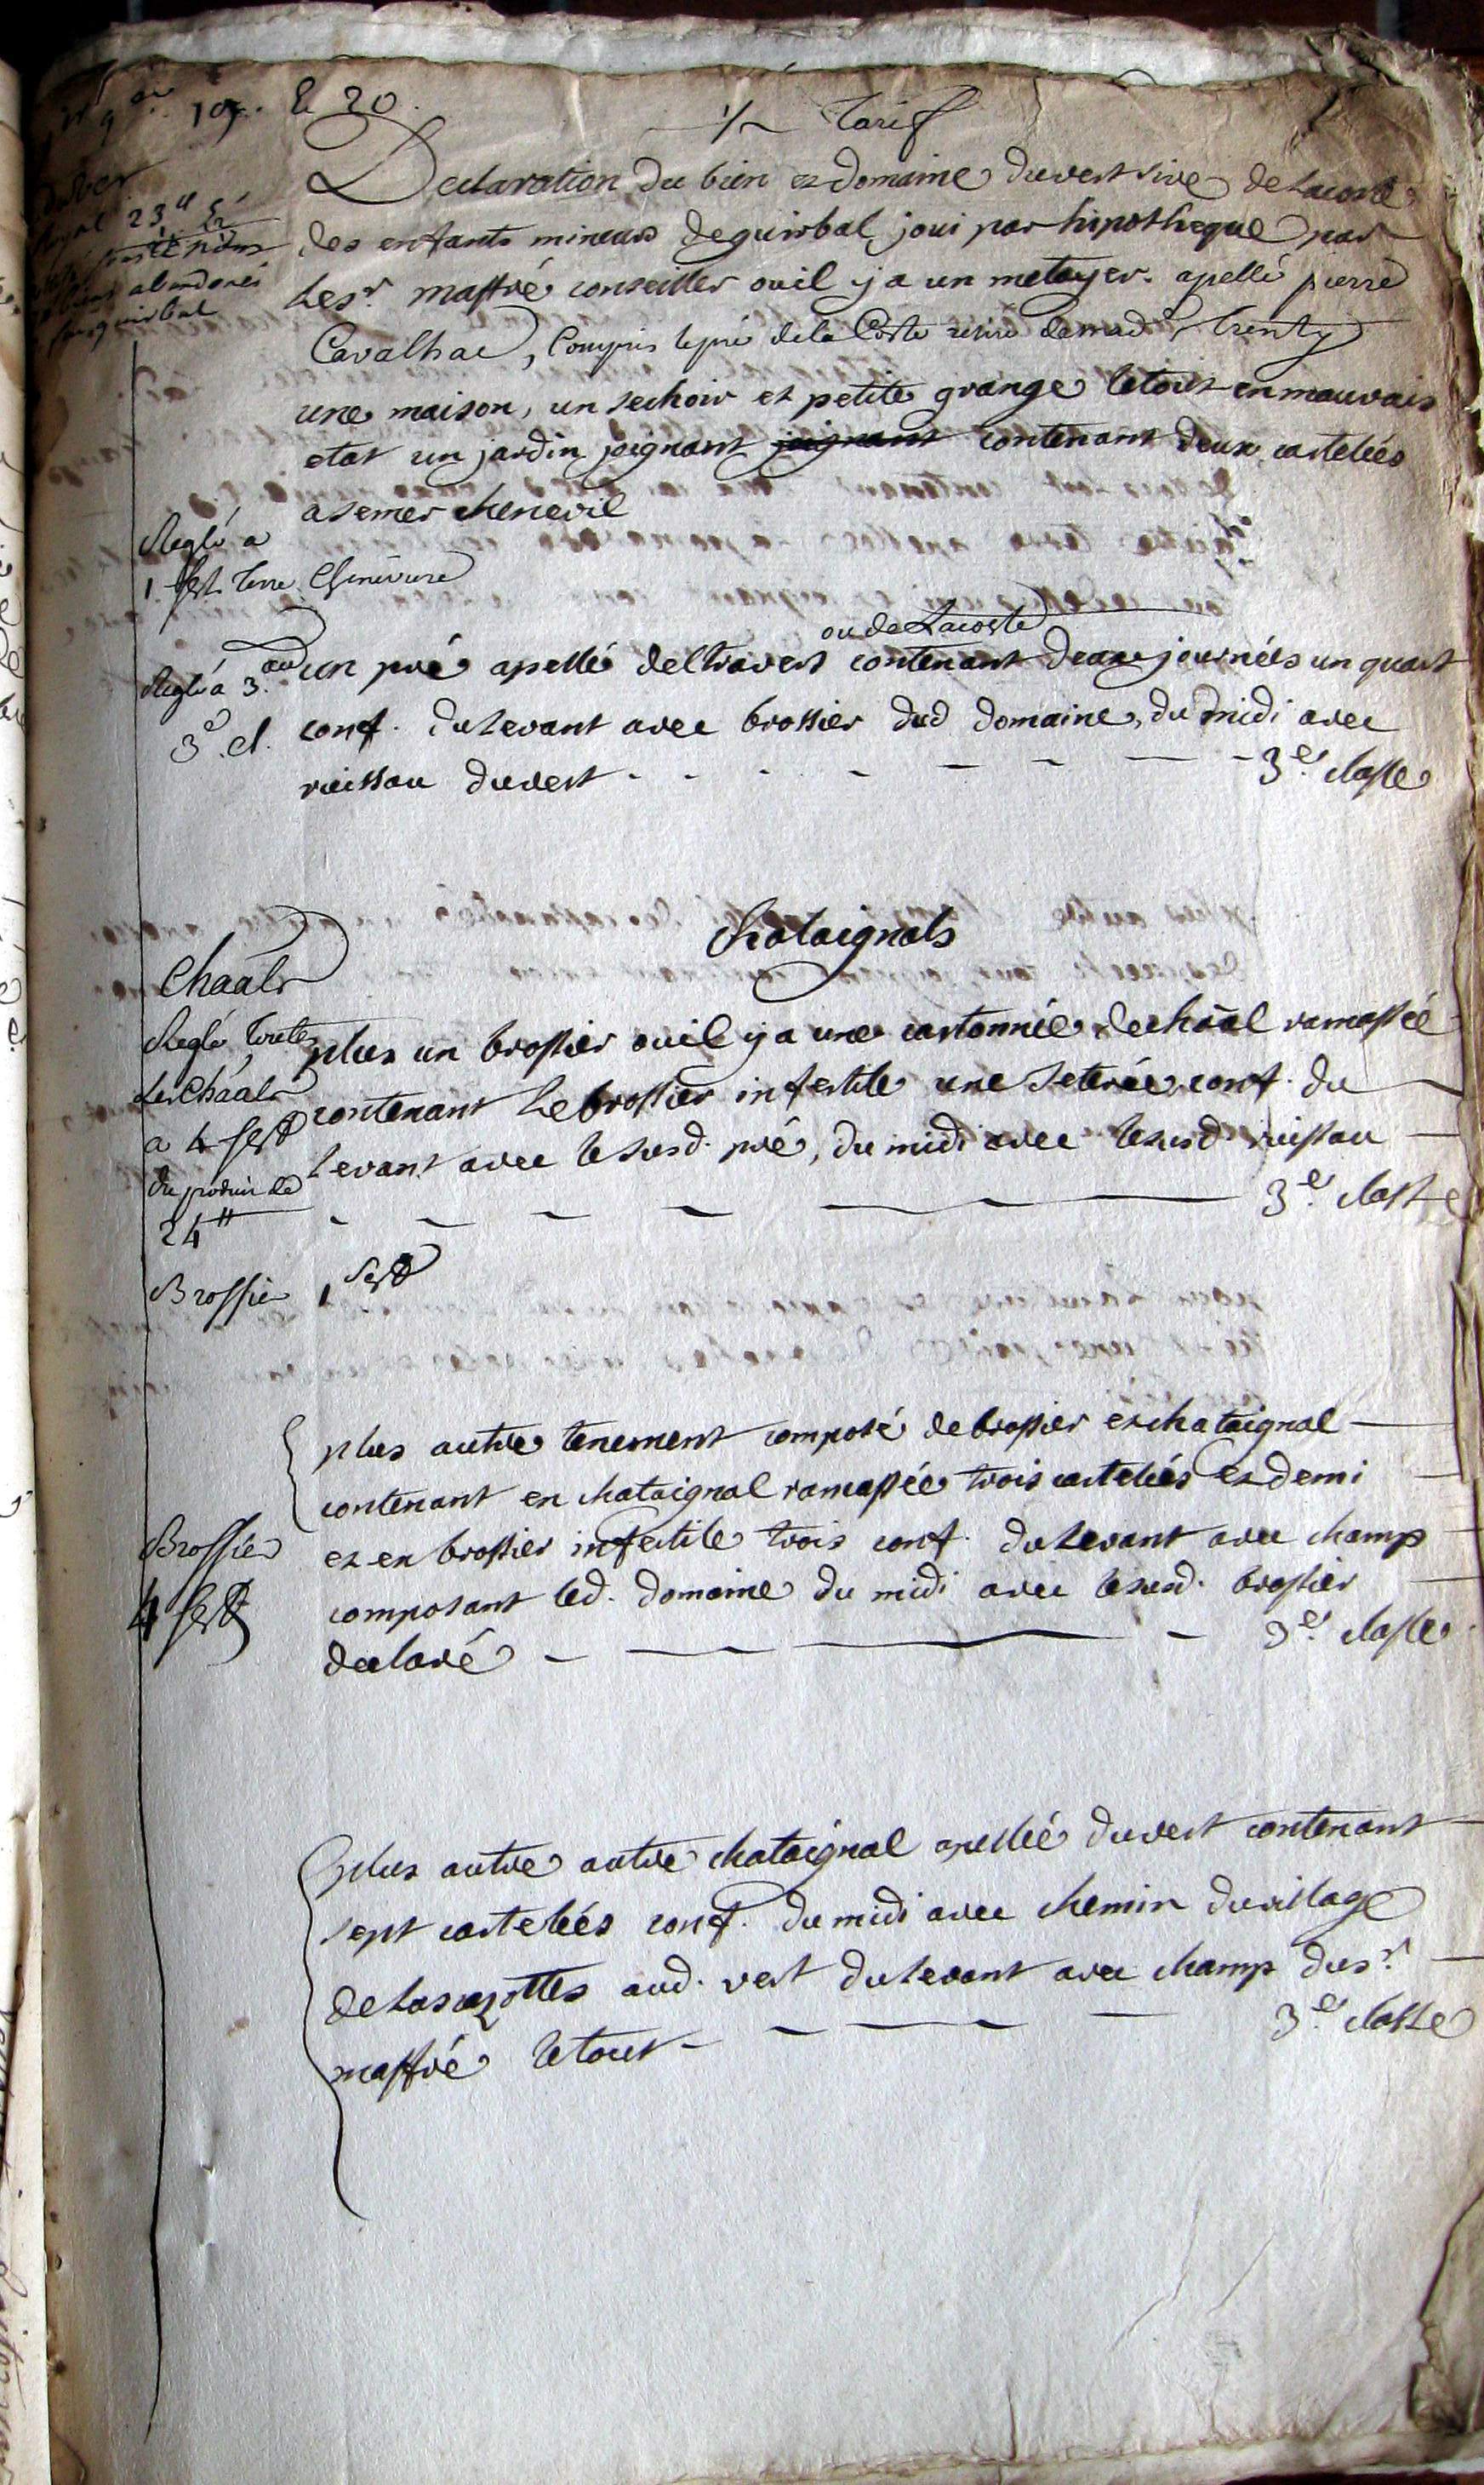 Le 20.
Tarif
Declaration du bien et domaine duvert sive de Lacoste
des enfants mineurs de guirbal joui par hipotheque par
Le sr. maffré conseiller ou il y a un metayer apellé pierre
Cavalhac, Compris le pré de la Coste
une maison, un sechoir et petite grange le tout en mauvais
etat un jardin joignant joignant contenant deux cartelées
a semer chenevil
Reglé a
1 sest. terre Cheneviere
ou de Lacoste
un pré apellé del travers contenant deux journées un quart
Reglé a 3.
3e cl.
conf. du levant avec brossier dud domaine, du midi avec
ruissau duvert - - - 3e. classe
Chataignals
Chaals
Reglé toutes
Les Chaals
a 4 sest
du produit de
24 ll
plus un brossier ou il y a une cartonnée de chãal ramassée
contenant Le brossier infertile une seterée conf. du
levant avec le susd. pré, du midi avec le susd. ruissau
3e. classe
Brossier 1 sest
plus autre tenement composé de brossier et chataignal
contenant en chataignal ramassée trois cartelées et demi
et en brossier infertile trois conf. du levant avec champ
composant led. domaine du midi avec le susd. brossier
declaré - 3e. classe
Brossier
4 sest
plus autre autre chataignal apellée duvert contenant
sept cartelées conf. du midi avec chemin du village
de Lascazottes aud. vert du levant avec champ du sr.
maffré le tout - 3e. classe